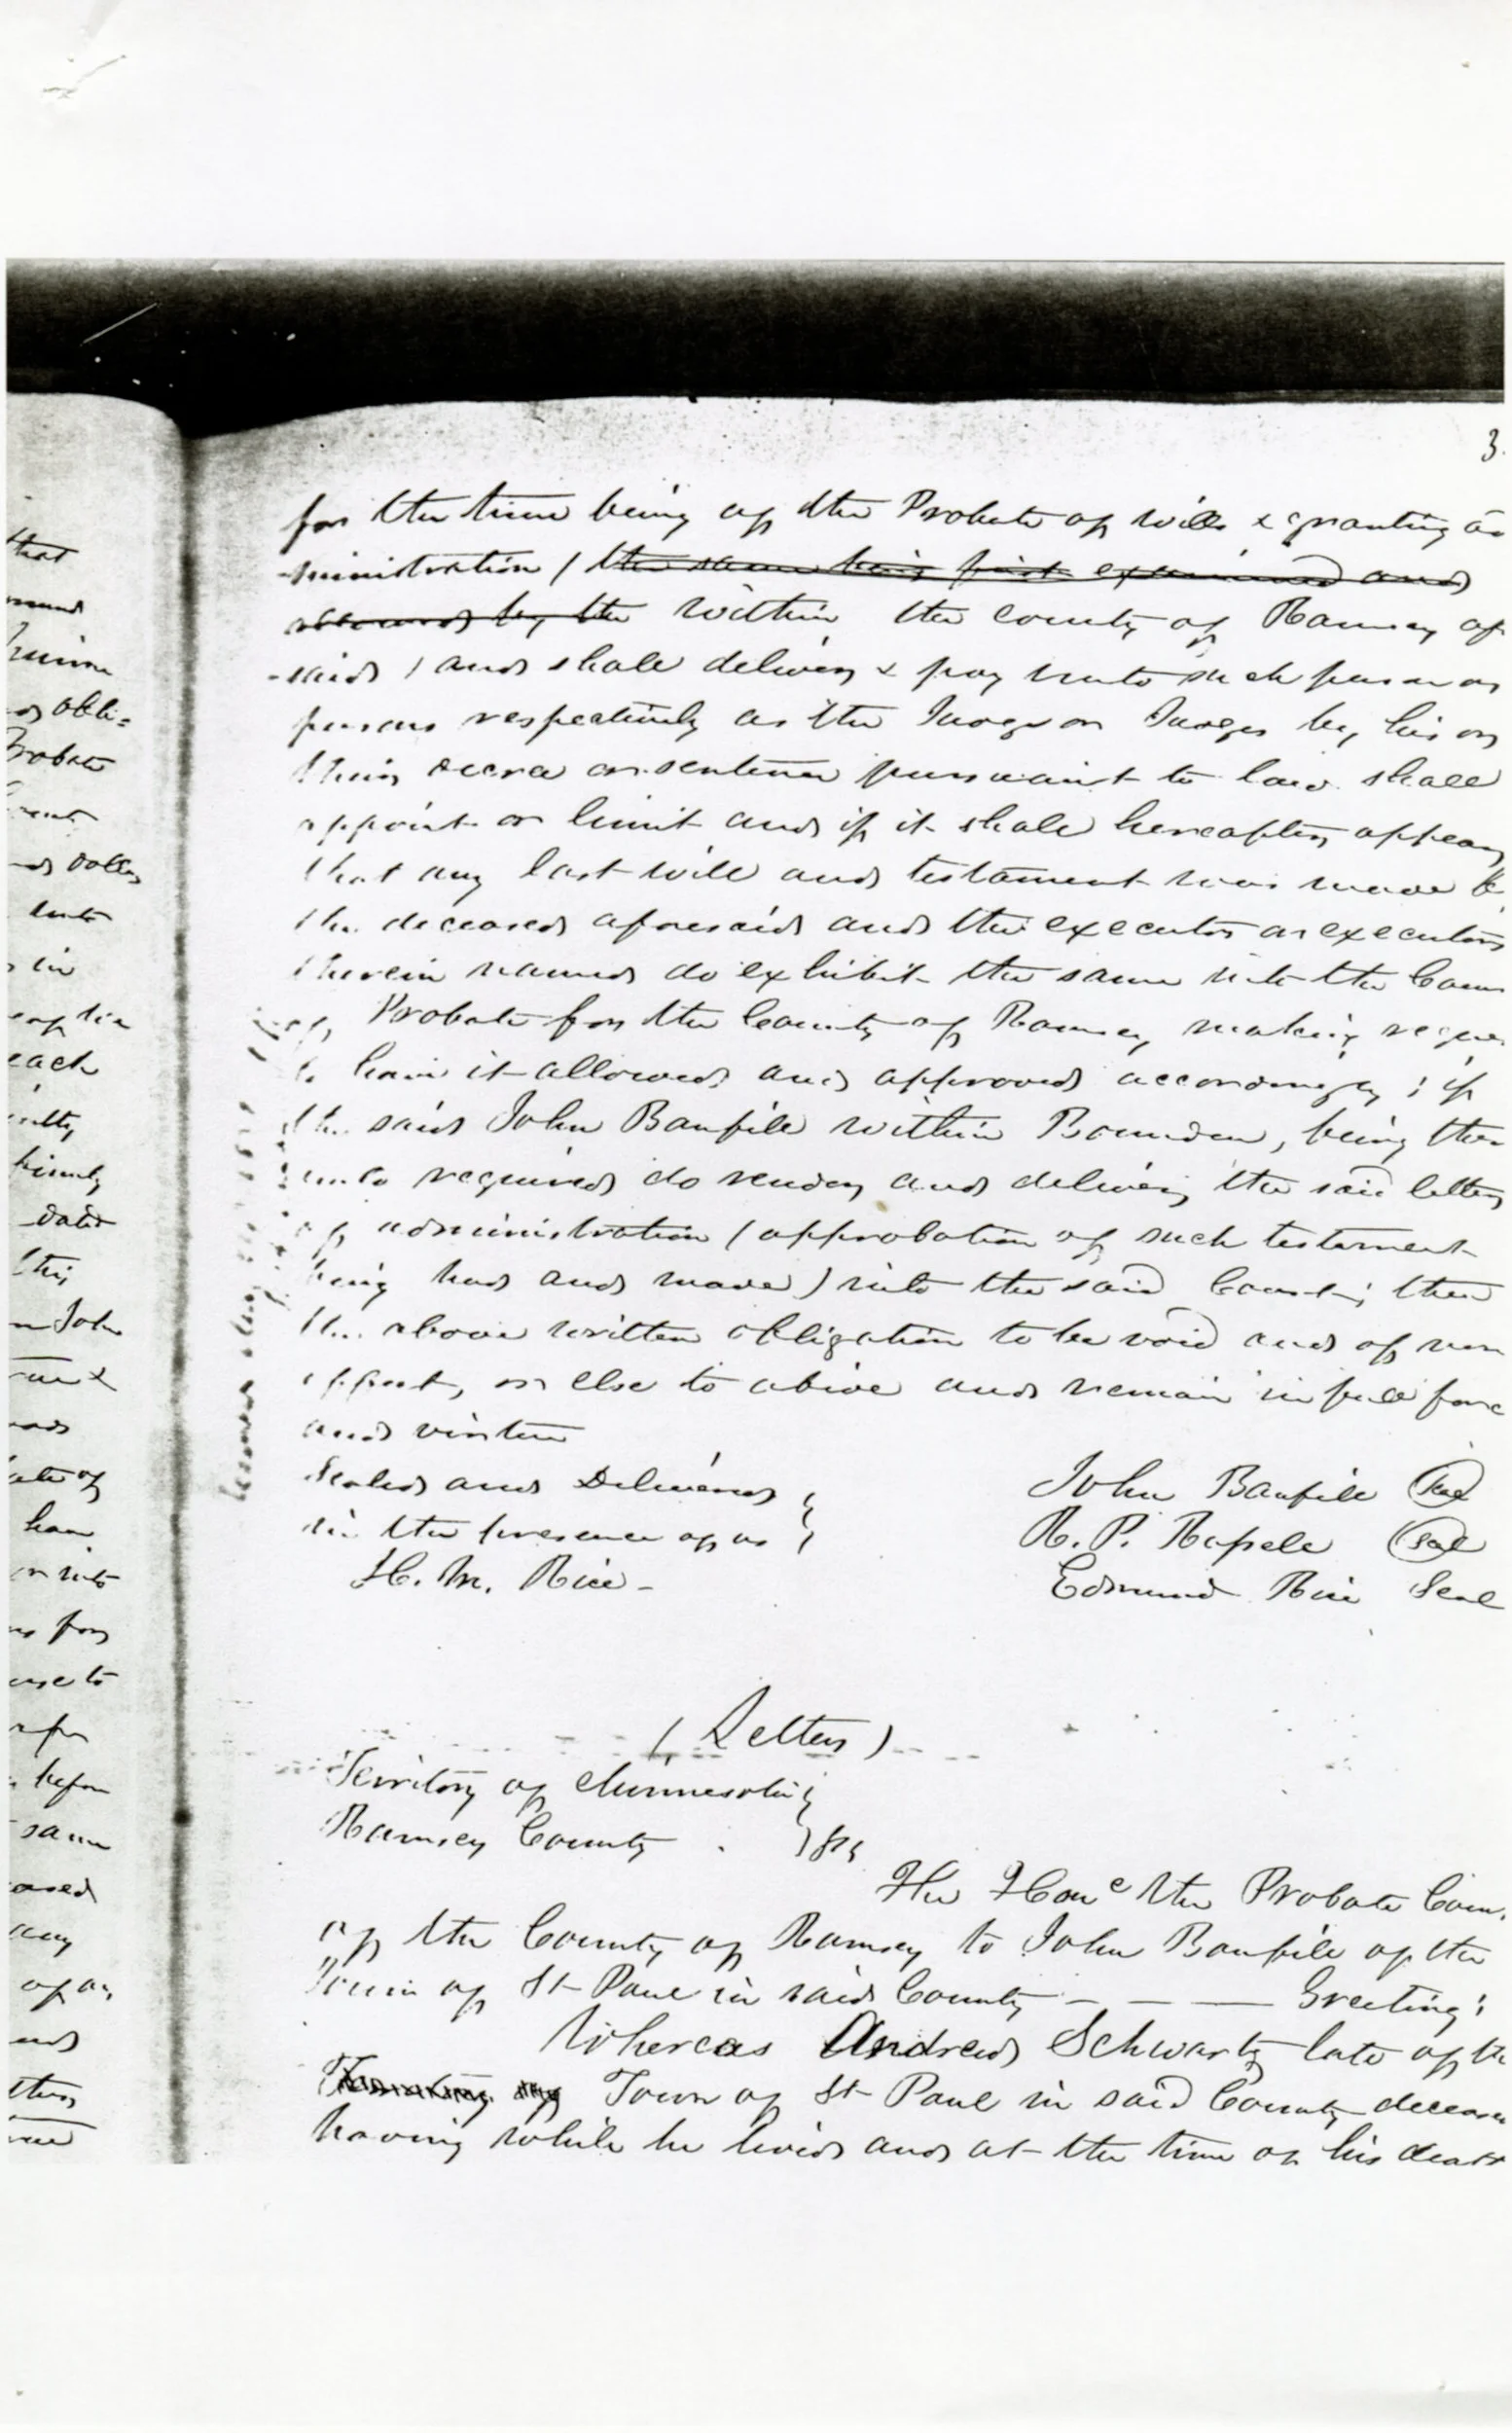 3.
for the time being of the Probate of wills & granting ad
-ministration ( the same being first examined and
allowed by the within the county of Ramsey afore
-said ) and shall deliver & pay unto such person or
persons respectively as the Judge or Judges by his or
their decree or sentence pursuant to law shall
appoint or limit and if it shall hereafter appear
that any last will and testament was made by
the deceased aforesaid and the executor or executors
therein named do exhibit the same into the Cour
of Probate for the County of Ramsey making reque
to have it allowed and approved accordingly ; if
the said John Banfile within Bounden, being there
unto required do render and deliver the said letters
of administration ( approbation of such testament
being had and made ) into the said Court ; then
the above written obligation to be void and of non
effect, or else to abide and remain in full force
and virtue
Sealed and Delivered
in the presence of us
H. M. Rice -
John Banfile Seal
R. P. Rupele Seal
Edmund Rice Seal
( Letters )
Territory of Minnesota
Ramsey County ss
The Hone the Probate Cour
of the County of Ramsey to John Banfile of the
Town of St Paul in said County - - - Greeting ;
Whereas Andrew Schwartz late of the
Town of St Paul in said County deceas
having while he lived and at the time of his death
that
obli=
Probate
dollars
unto
in
each
dated
this
John
late of
have
for
before
same